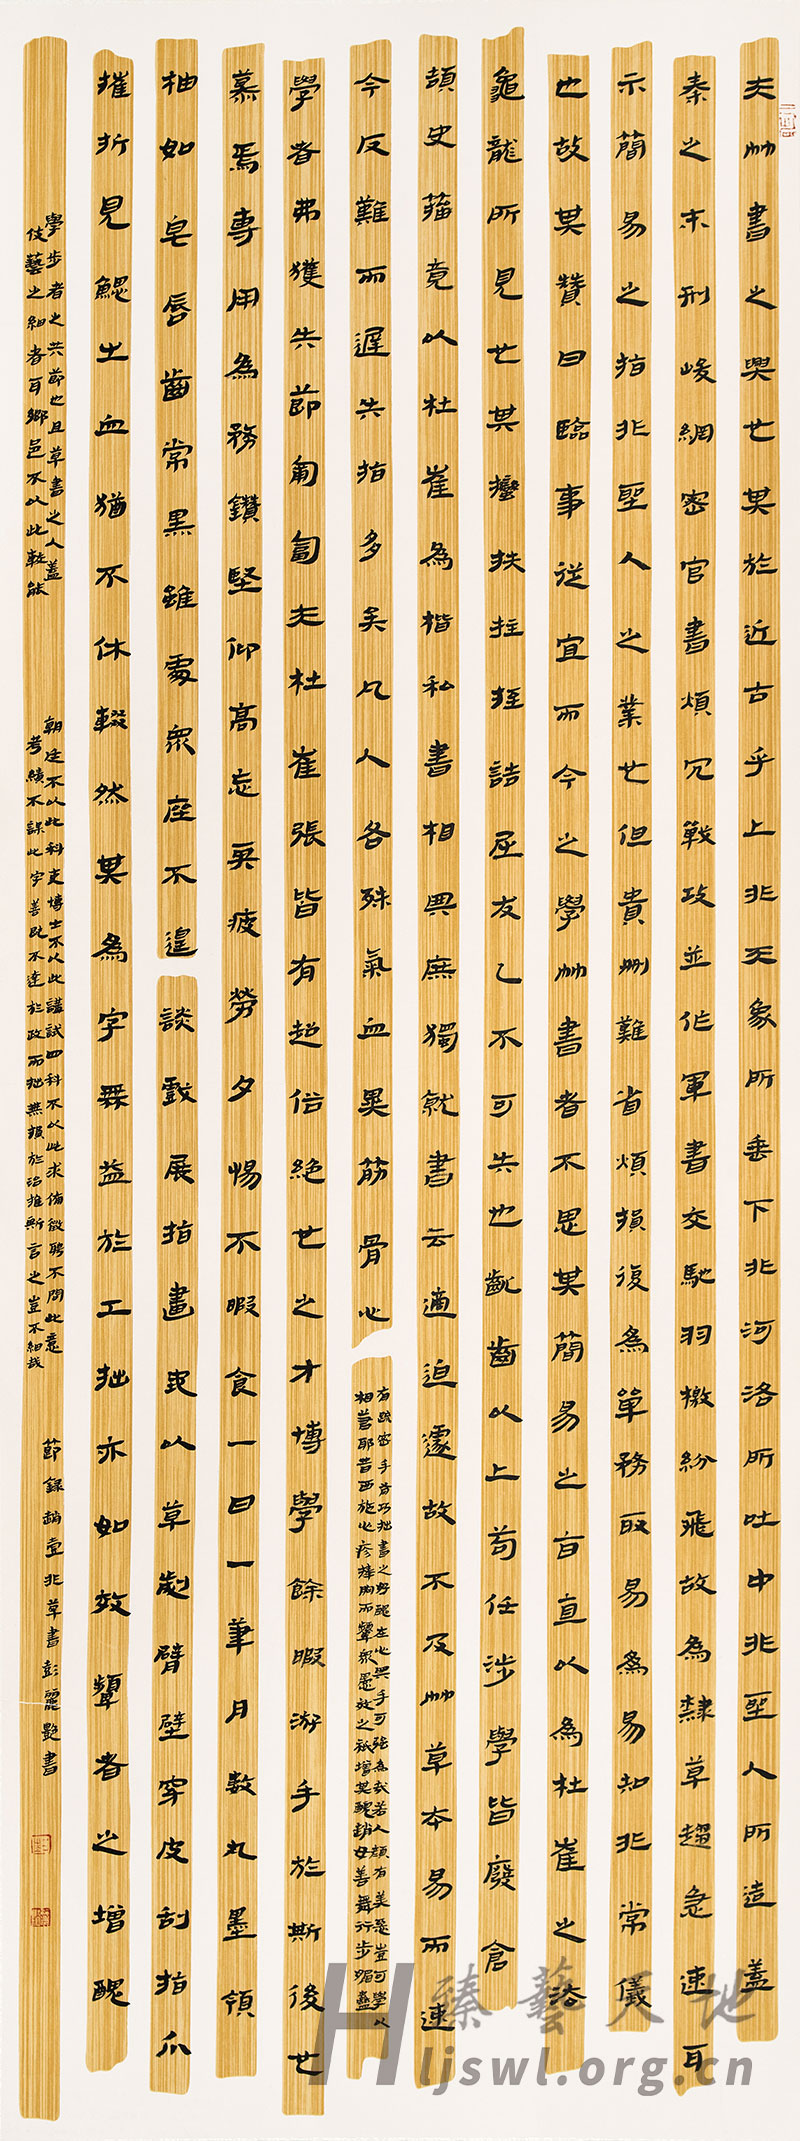 夫艸書之興也其於近古乎上非天象所垂下非河洛所吐中非聖人所造蓋
秦之末刑峻網密官書煩冗戰攻並作軍書交馳羽檄紛飛故為隸草趨急速耳
示簡易之指非聖人之業也但貴刪難省煩損復為單務取易為易知非常儀
也故其贊曰臨事從宜而今之學艸書者不思其簡易之旨直以為杜崔之法
龜龍所見也其蠻扶拄挃詰屈友乙不可失也齓齒以上苟任涉學皆廢倉
頡史籀竟以杜崔為楷私書相與庶獨就書云適迫遽故不及艸草本易而速
今反難而遲失指多矣凡人各殊氣血異筋骨心
有疏密手有巧拙書之好醜在心與手可強為哉若人顏有美惡豈可學以
相若耶昔西施心疹捧胸而顰眾愚效之祇增其醜趙女善舞行步媚蠱
學者弗獲失節匍匐夫杜崔張皆有超俗絕世之才博學餘暇游手於斯後世
慕焉專用為務鑽堅仰高忘其疲勞夕惕不暇食一日一筆月數丸墨領
柚如皂唇齒常黑雖處眾座不遑談戲展指畫地以草劌臂壁穿皮刮指爪
摧折見鰓出血猶不休輟然其為字無益於工拙亦如效顰者之增醜
學步者之失節也且草書之人蓋
伎藝之細者耳鄉邑不以此較能
朝廷不以此科吏博士不以此講試四科不以此求備徵聘不問此意
考績不課此字善既不達於政而拙無損於治推斯言之豈不細哉
節錄趙壹非草書彭麗艷書
臻藝天地
Hljswl.org.cn